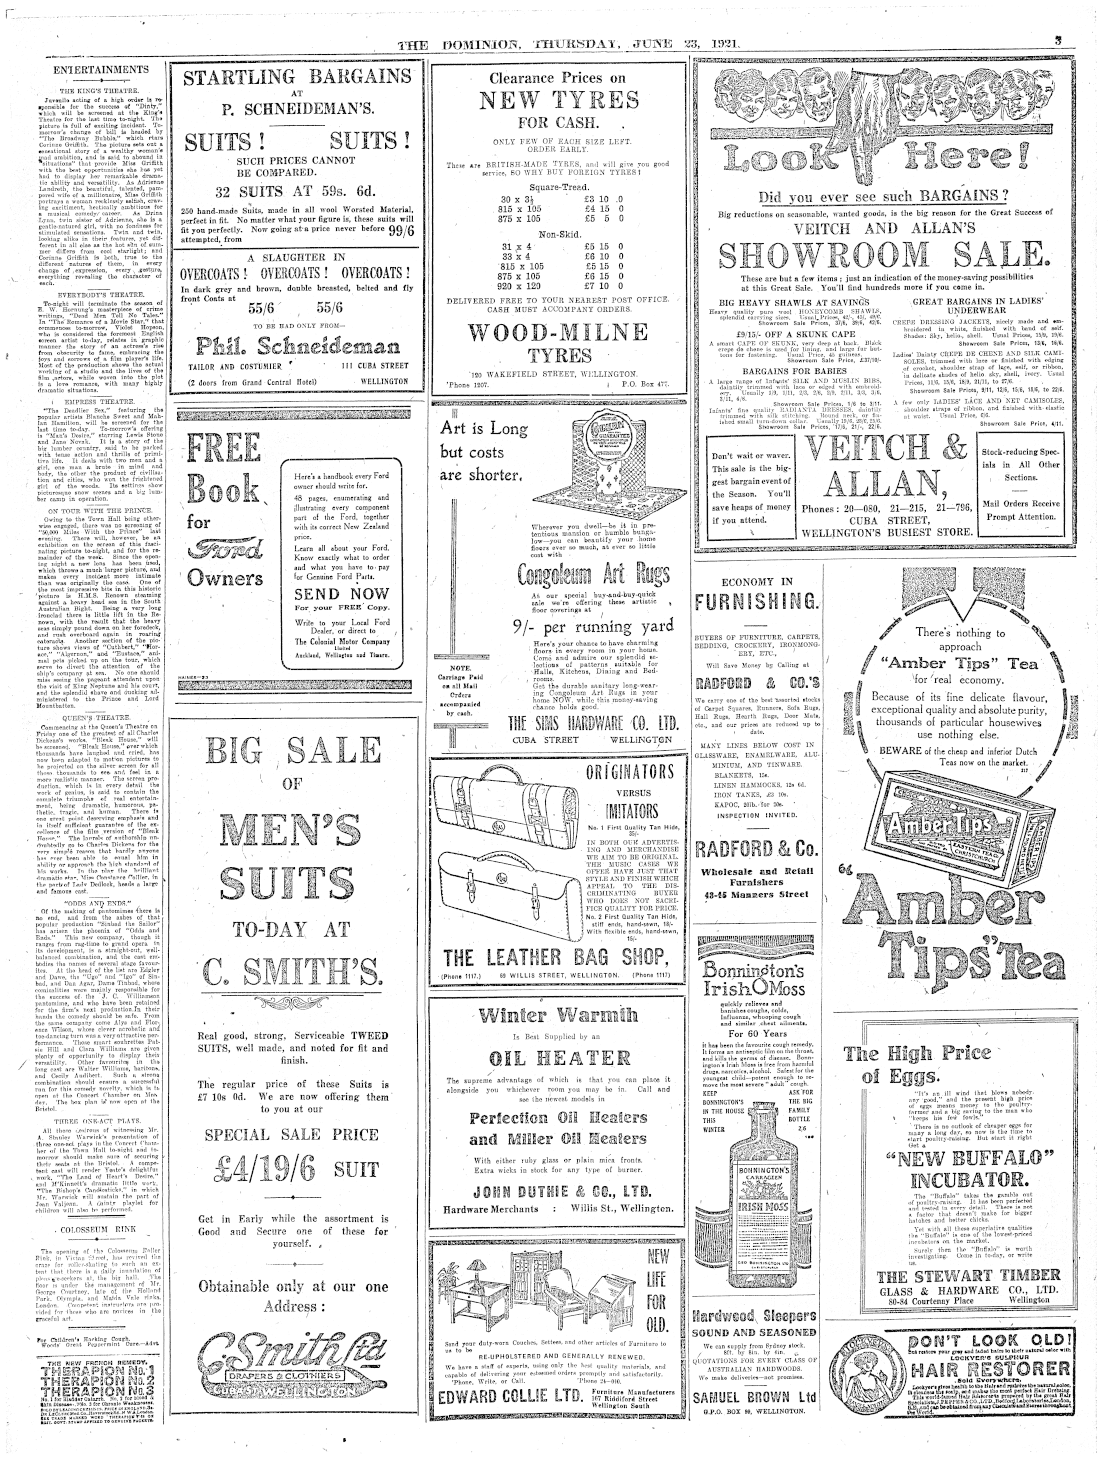 THE DOMINION, THURSDAY, JUNE 23, 1921.
3
ENTERTAINMENTS
THE KING'S THEATRE.
Juvenile acting of a high order is re-
sponsible for the success of "Dinty,"
which will be screened at the King's
Theatre for the last time to-night. The
picture is full of exciting incident. To-
morrow's change of bill is headed by
"The Broadway Bubble," which stars
Corinne Griffith. The picture sets out a
sensational story of a wealthy woman's
mad ambition, and is said to abound in
"situations" that provide Miss Griffith
with the best opportunities she has yet
had to display her remarkable drama-
tic ability and versatility. As Adrienne
Landreth, the beautiful, talented, pam-
pered wife of a millionaire, Miss Griffith
portrays a woman recklessly selfish, crav-
ing excitement, hectically ambitious for
a musical comedy career. As Drina
Lynn, twin sister of Adrienne, she is a
gentle-natured girl, with no fondness for
stimulated sensations. Twin and twin,
looking alike in their features, yet dif-
ferent in all else as the hot sun of sum-
mer differs from cool starlight; and
Corinne Griffith is both, true to the
different natures of them, in every
change of expression, every gesture,
everything revealing the character of
each.
EVERYBODY'S THEATRE.
To-night will terminate the season of
E. W. Hornung's masterpiece of crime
writings, "Dead Men Tell No Tales."
In "The Romance of a Movie Star," that
commences to-morrow, Violet Hopson,
who is considered the foremost English
screen artist to-day, relates in graphic
manner the story of an actress's rise
from obscurity to fame, embracing the
joys and sorrows of a film player's life.
Most of the production shows the actual
working of a studio and the lives of the
film actors, while woven into the plot
is a love romance, with many highly
dramatic situations.
EMPRESS THEATRE.
"The Deadlier Sex," featuring the
popular artists Blanche Sweet and Mah-
lan Hamilton, will be screened for the
last time to-day. To-morrow's offering
is "Man's Desire," starring Lewis Stone
and Jane Novak. It is a story of the
big lumber country, said to be packed
with tense action and thrills of primi-
tive life. It deals with two men and a
girl, one man a brute in mind and
body, the other the product of civilisa-
tion and cities, who won the frightened
girl of the woods. Its settings show
picturesque snow scenes and a big lum-
ber camp in operation.
ON TOUR WITH THE PRINCE.
Owing to the Town Hall being other-
wise engaged, there was no screening of
"50,000 Miles With the Prince" last
evening. There will, however, be an
exhibition on the screen of this fasci-
nating picture to-night, and for the re-
mainder of the week. Since the open-
ing night a new lens has been used,
which throws a much larger picture, and
makes every incident more intimate
than was originally the case. One of
the most impressive bits in this historic
picture is H.M.S. Renown steaming
against a heavy head sea in the South
Australian Bight. Being a very long
ironclad there is little lift in the Re-
nown, with the result that the heavy
seas simply pound down on her foredeck,
and rush overboard again in roaring
cataracts. Another section of the pic-
ture shows views of "Cuthbert," "Hor-
ace," "Algernon," and "Eustace," ani-
mal pets picked up on the tour, which
serve to direct the attention of the
ship's company at sea. No one should
miss seeing the pageant attendant upon
the visit of King Neptune and his court,
and the splendid shave and ducking ad-
ministered to the Prince and Lord
Mountbatten.
QUEEN'S THEATRE.
Commencing at the Queen's Theatre on
Friday one of the greatest of all Charles
Dickens's works, "Bleak House," will
be screened. "Bleak House," over which
thousands have laughed and cried, has
now been adapted to motion pictures to
be projected on the silver screen for all
these thousands to see and feel in a
more realistic manner. The screen pro-
duction, which is in every detail the
work of genius, is said to contain the
complete triumphs of real entertain-
ment, being dramatic, humorous, pa-
thetic, tragic, and human. There is
one great point deserving emphasis and
in itself sufficient guarantee of the ex-
cellence of the film version of "Bleak
House." The laurels of authorship un-
doubtedly go to Charles Dickens for the
very simple reason that hardly anyone
has ever been able to equal him in
ability or approach the high standard of
his works. In the play the brilliant
dramatic star, Miss Constance Collier, in
the part of Lady Dedlock, heads a large
and famous cast.
"ODDS AND ENDS."
Of the making of pantomimes there is
no end, and from the ashes of that
popular production "Sinbad the Sailor"
has arisen the phoenix of "Odds and
Ends." This new company, though it
ranges from rag-time to grand opera in
its development, is a straight-out, well-
balanced combination, and the cast em-
bodies the names of several stage favour-
ites. At the head of the list are Edgley
and Dawe, the "Ugo" and "Igo" of Sin-
bad, and Dan Agar, Dame Tinbad, whose
comicalities were mainly responsible for
the success of the J. C. Williamson
pantomime, and who have been retained
for the firm's next production. In their
hands the comedy should be safe. From
the same company come Alya and Flor-
ence Wilson, whose clever acrobatic and
toe-dancing turn was a very attractive per-
formance. Those smart soubrettes Pat-
sie Hill and Clara Williams are given
plenty of opportunity to display their
versatility. Other favourites in the
long cast are Walter Williams, baritone,
and Cecily Audibert. Such a strong
combination should ensure a successful
run for this comedy novelty, which is to
open at the Concert Chamber on Mon-
day. The box plan is now open at the
Bristol.
THREE ONE-ACT PLAYS.
All those desirous of witnessing Mr.
A. Stanley Warwick's presentation of
three one-act plays in the Concert Cham-
ber of the Town Hall to-night and to-
morrow should make sure of securing
their seats at the Bristol. A compe-
tent cast will render Yeats's delightful
work, "The Land of Heart's Desire,"
and M'Kinnell's dramatic little work,
"The Bishop's Candlesticks," in which
Mr. Warwick will sustain the part of
Jean Valjean. A dainty playlet for
children will also be performed.
COLOSSEUM RINK
The opening of the Colosseum Roller
Rink, in Vivian Street, has revived the
craze for roller-skating to such an ex-
tent that there is a daily inundation of
pleasure-seekers at the big hall. The
floor is under the management of Mr.
George Courtney, late of the Holland
Park, Olympia, and Maida Vale rinks,
London. Competent instructors are pro-
vided for those who are novices in the
graceful art.
For Children's Hacking Cough,
Woods' Great Peppermint Cure.—Advt.
THE NEW FRENCH REMEDY.
THERAPION No. 1
THERAPION No. 2
THERAPION No. 3
STARTLING BARGAINS
AT
P. SCHNEIDEMAN'S.
SUITS! SUITS!
SUCH PRICES CANNOT
BE COMPARED.
32 SUITS AT 59s. 6d.
250 hand-made Suits, made in all wool Worsted Material,
perfect in fit. No matter what your figure is, these suits will
fit you perfectly. Now going at a price never before
attempted, from 99/6
A SLAUGHTER IN
OVERCOATS! OVERCOATS! OVERCOATS!
In dark grey and brown, double breasted, belted and fly
front Coats at
55/6 55/6
TO BE HAD ONLY FROM—
Phil. Schneideman
TAILOR AND COSTUMIER 111 CUBA STREET
(2 doors from Grand Central Hotel) WELLINGTON
FREE
Book
for
Ford
Owners
Here's a handbook every Ford
owner should write for.
48 pages, enumerating and
illustrating every component
part of the Ford, together
with its correct New Zealand
price.
Learn all about your Ford.
Know exactly what to order
and what you have to pay
for Genuine Ford Parts.
SEND NOW
For your FREE Copy.
Write to your Local Ford
Dealer, or direct to
The Colonial Motor Company
Limited
Auckland, Wellington and Timaru.
HAINES—23
BIG SALE
OF
MEN'S
SUITS
TO-DAY AT
C. SMITH'S.
Real good, strong, Serviceable TWEED
SUITS, well made, and noted for fit and
finish.
The regular price of these Suits is
£7 10s 0d. We are now offering them
to you at our
SPECIAL SALE PRICE
£4/19/6 SUIT
Get in Early while the assortment is
Good and Secure one of these for
yourself.
Obtainable only at our one
Address:
C Smith Ltd
DRAPERS & CLOTHIERS
CUBA ST WELLINGTON
Clearance Prices on
NEW TYRES
FOR CASH.
ONLY FEW OF EACH SIZE LEFT.
ORDER EARLY.
These are BRITISH-MADE TYRES, and will give you good
service, SO WHY BUY FOREIGN TYRES!
Square-Tread.
30 x 3½ £3 10 0
815 x 105 £4 15 0
875 x 105 £5 5 0
Non-Skid.
31 x 4 £5 15 0
33 x 4 £6 10 0
815 x 105 £5 15 0
875 x 105 £6 15 0
920 x 120 £7 10 0
DELIVERED FREE TO YOUR NEAREST POST OFFICE.
CASH MUST ACCOMPANY ORDERS.
WOOD-MILNE
TYRES
120 WAKEFIELD STREET, WELLINGTON.
'Phone 1207. P.O. Box 477.
Art is Long
but costs
are shorter.
NOTE.
Carriage Paid
on all Mail
Orders
accompanied
by cash.
Wherever you dwell—be it in pre-
tentious mansion or humble bunga-
low—you can beautify your home
floors ever so much, at ever so little
cost with
Congoleum Art Rugs
At our special buy-and-buy-quick
sale we're offering these artistic
floor coverings at
9/- per running yard
Here's your chance to have charming
floors in every room in your home.
Come and admire our splendid se-
lections of patterns suitable for
Halls, Kitchens, Dining and Bed-
rooms.
Get the durable sanitary long-wear-
ing Congoleum Art Rugs in your
home NOW, while this money-saving
chance holds good.
THE SIMS HARDWARE CO. LTD.
CUBA STREET WELLINGTON
ORIGINATORS
VERSUS
IMITATORS
No. 1 First Quality Tan Hide,
35/-
IN BOTH OUR ADVERTIS-
ING AND MERCHANDISE
WE AIM TO BE ORIGINAL.
THE MUSIC CASES WE
OFFER HAVE JUST THAT
STYLE AND FINISH WHICH
APPEAL TO THE DIS-
CRIMINATING BUYER
WHO DOES NOT SACRI-
FICE QUALITY FOR PRICE.
No. 2 First Quality Tan Hide,
stiff ends, hand-sewn, 18/-
With flexible ends, hand-sewn,
THE LEATHER BAG SHOP,
(Phone 1117.) 69 WILLIS STREET, WELLINGTON. (Phone 1117)
Winter Warmth
Is Best Supplied by an
OIL HEATER
The supreme advantage of which is that you can place it
alongside you whichever room you may be in. Call and
see the newest models in
Perfection Oil Heaters
and Miller Oil Heaters
With either ruby glass or plain mica fronts.
Extra wicks in stock for any type of burner.
JOHN DUTHIE & CO., LTD.
Hardware Merchants : Willis St., Wellington.
NEW
LIFE
FOR
OLD.
Send your duty-worn Couches, Settees, and other articles of Furniture to
us to be
RE-UPHOLSTERED AND GENERALLY RENEWED.
We have a staff of experts, using only the best quality materials, and
capable of delivering your esteemed orders promptly and satisfactorily.
'Phone, Write, or Call. 'Phone 24—810.
EDWARD COLLIE LTD.
Furniture Manufacturers
167 Riddiford Street
Wellington South
Look Here!
Did you ever see such BARGAINS?
Big reductions on seasonable, wanted goods, is the big reason for the Great Success of
VEITCH AND ALLAN'S
SHOWROOM SALE.
These are but a few items; just an indication of the money-saving possibilities
at this Great Sale. You'll find hundreds more if you come in.
BIG HEAVY SHAWLS AT SAVINGS
Heavy quality pure wool HONEYCOMB SHAWLS,
splendid carrying sizes. Usual Prices, 42/-, 45/-, 49/6.
Showroom Sale Prices, 37/6, 39/6, 42/6.
£9/15/- OFF A SKUNK CAPE
A smart CAPE OF SKUNK, very deep at back. Black
crepe de chene is used for lining, and large fur but-
tons for fastening. Usual Price, 45 guineas.
Showroom Sale Price, £37/10/-
BARGAINS FOR BABIES
A large range of Infants' SILK AND MUSLIN BIBS,
daintily trimmed with lace or edged with embroid-
ery.
Showroom Sale Prices, 1/6 to 3/11.
Infants' fine quality RADIANTA DRESSES, daintily
trimmed with silk stitching. Round neck, or fin-
ished small turn-down collar.
GREAT BARGAINS IN LADIES'
UNDERWEAR
CREPE DRESSING JACKETS, nicely made and em-
broidered in white, finished with band of self.
Shades: Sky, helio, shell. Usual Prices, 15/9, 19/11.
Showroom Sale Prices, 13/6, 16/6.
Ladies' Dainty CREPE DE CHENE AND SILK CAMI-
SOLES, trimmed with lace or finished with edging
of crochet, shoulder strap of lace, self, or ribbon,
in delicate shades of helio sky, shell, ivory. Usual
Prices, 11/6, 15/6, 18/9, 21/11, to 27/6.
Showroom Sale Prices, 9/11, 12/6, 15/6, 18/6, to 22/6.
A few only LADIES' LACE AND NET CAMISOLES,
shoulder straps of ribbon, and finished with elastic
at waist. Usual Price, 6/6.
Showroom Sale Price, 4/11.
Don't wait or waver.
This sale is the big-
gest bargain event of
the Season. You'll
save heaps of money
if you attend.
VEITCH &
ALLAN,
Phones: 20—080, 21—215, 21—796,
CUBA STREET,
WELLINGTON'S BUSIEST STORE.
Stock-reducing Spec-
ials in All Other
Sections.
Mail Orders Receive
Prompt Attention.
ECONOMY IN
FURNISHING.
BUYERS OF FURNITURE, CARPETS,
BEDDING, CROCKERY, IRONMONG-
ERY, ETC.,
Will Save Money by Calling at
RADFORD & CO.'S
We carry one of the best assorted stocks
of Carpet Squares, Runners, Sofa Rugs,
Hall Rugs, Hearth Rugs, Door Mats,
etc., and our prices are reduced up to
date.
MANY LINES BELOW COST IN
GLASSWARE, ENAMELWARE, ALU-
MINIUM, AND TINWARE.
BLANKETS, 15s.
LINEN HAMMOCKS, 12s 6d.
IRON TANKS, £3 10s.
KAPOC, 20lb. for 30s.
INSPECTION INVITED.
RADFORD & Co.
Wholesale and Retail
Furnishers
43-45 Manners Street
There's nothing to
approach
"Amber Tips" Tea
for real economy.
Because of its fine delicate flavour,
exceptional quality and absolute purity,
thousands of particular housewives
use nothing else.
BEWARE of the cheap and inferior Dutch
Teas now on the market.
217
Amber Tips
"Amber
Tips" Tea
Bonnington's
Irish Moss
quickly relieves and
banishes coughs, colds,
influenza, whooping cough
and similar chest ailments.
For 60 Years
it has been the favourite cough remedy.
It forms an antiseptic film on the throat,
and kills the germs of disease. Bonn-
ington's Irish Moss is free from harmful
drugs, narcotics, alcohol. Safest for the
youngest child—potent enough to re-
move the most severe "adult" cough.
KEEP
BONNINGTON'S
IN THE HOUSE
THIS
WINTER
ASK FOR
THE BIG
FAMILY
BOTTLE
2/6
BONNINGTON'S
CARRAGEEN
IRISH MOSS
Hardwood Sleepers
SOUND AND SEASONED
We can supply from Sydney stock.
QUOTATIONS FOR EVERY CLASS OF
AUSTRALIAN HARDWOODS.
We make deliveries—not promises.
SAMUEL BROWN Ltd
G.P.O. BOX 90, WELLINGTON.
The High Price
of Eggs.
"It's an ill wind that blows nobody
any good," and the present high price
of eggs means money to the poultry-
farmer and a big saving to the man who
"keeps his few fowls."
There is no outlook of cheaper eggs for
many a long day, so now is the time to
start poultry-raising. But start it right
Get a
"NEW BUFFALO"
INCUBATOR.
The "Buffalo" takes the gamble out
of poultry-raising. It has been perfected
and tested in every detail. There is not
a factor that doesn't make for bigger
hatches and better chicks.
Yet with all these superlative qualities
the "Buffalo" is one of the lowest-priced
incubators on the market.
Surely then the "Buffalo" is worth
investigating. Come in to-day, or write
us.
THE STEWART TIMBER
GLASS & HARDWARE CO., LTD.
80-84 Courtenay Place Wellington
DON'T LOOK OLD!
But restore your grey and faded hairs to their natural color with
LOCKYER'S SULPHUR
HAIR RESTORER
Sold Everywhere.